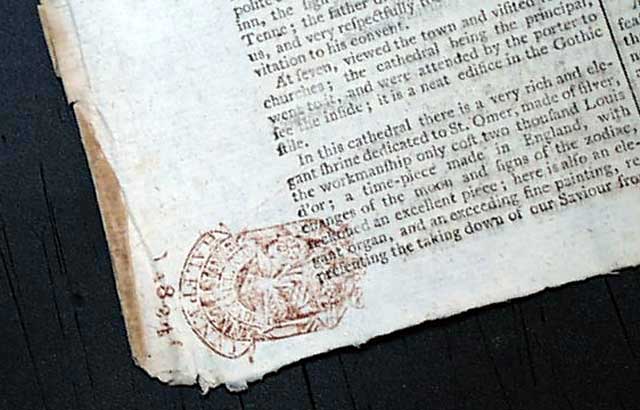 polite
inn, the
Tenne; the father
us, and very reſpectfully
vitation to his convent.
At ſeven, viewed the town and viſited
churches; the cathedral being the principal,
went to it, and were attended by the porter to
ſee the inſide; it is a neat edifice in the Gothic
ſtile.
In this cathedral there is a very rich and ele-
gant ſhrine dedicated to St. Omer, made of ſilver,
the workmanſhip only coſt two thouſand Louis
d'or; a time-piece made in England, with
changes of the moon and ſigns of the zodiac,
reckoned an excellent piece; here is alſo an ele-
gant organ, and an exceeding fine painting,
preſenting the taking down of our Saviour